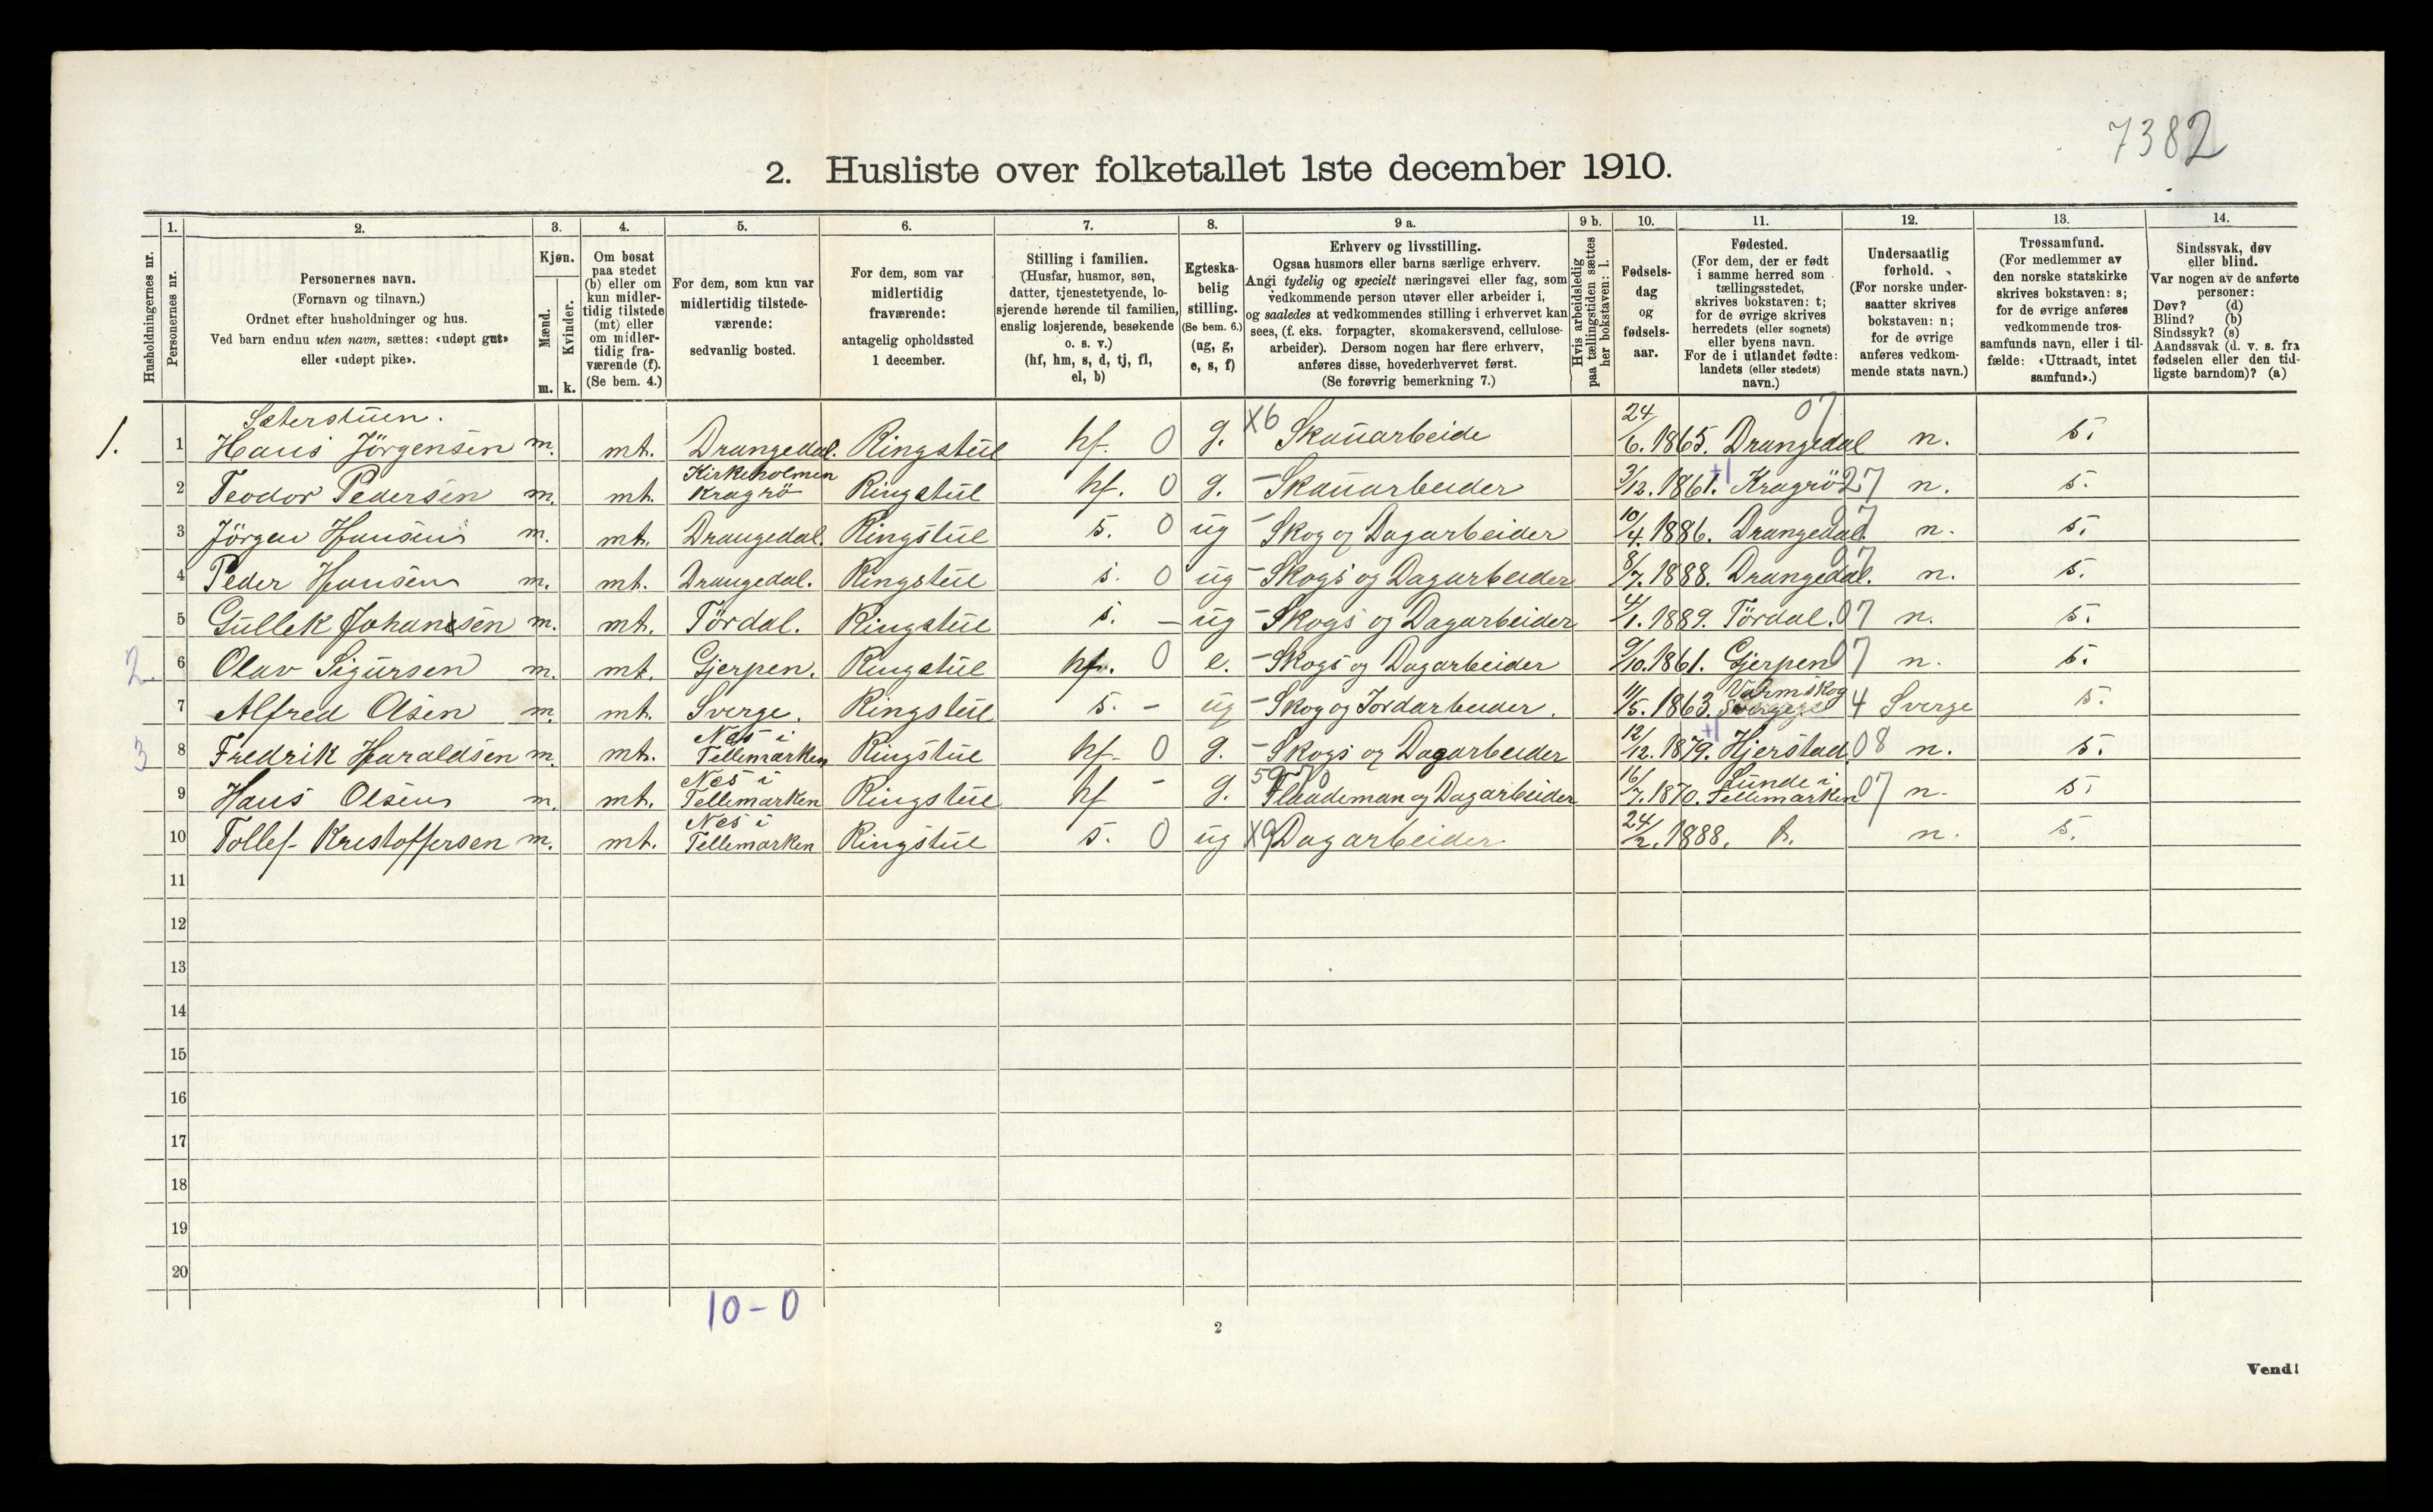 7382
2. Husliste over folketallet 1ste december 1910.
1. 2. 3. 4. 5. 6. 7. 8. 9 a. 9 b. 10. 11. 12. 13. 14.
Husholdningernes nr.
Personernes nr.
Personernes navn.
(Fornavn og tilnavn.)
Ordnet efter husholdninger og hus.
Ved barn endnu uten navn, sættes: «udøpt gut»
eller «udøpt pike».
Kjøn.
Mænd.
m.
Kvinder.
k.
Om bosat
paa stedet
(b) eller om
kun midler-
tidig tilstede
(mt) eller
om midler-
tidig fra-
værende (f).
(Se bem. 4.)
For dem, som kun var
midlertidig tilstede-
værende:
sedvanlig bosted.
For dem, som var
midlertidig
fraværende:
antagelig opholdssted
1 december.
Stilling i familien.
(Husfar, husmor, søn,
datter, tjenestetyende, lo-
sjerende hørende til familien,
enslig losjerende, besøkende
o. s. v.)
(hf, hm, s, d, tj, fl,
el, b)
Egteska-
belig
stilling.
(Se bem. 6.)
(ug, g,
e, s, f)
Erhverv og livsstilling.
Ogsaa husmors eller barns særlige erhverv.
Angi tydelig og specielt næringsvei eller fag, som
vedkommende person utøver eller arbeider i,
og saaledes at vedkommendes stilling i erhvervet kan
sees, (f. eks. forpagter, skomakersvend, cellulose-
arbeider). Dersom nogen har flere erhverv,
anføres disse, hovederhvervet først.
(Se forøvrig bemerkning 7.)
Hvis arbeidsledig
paa tællingstiden sættes
her bokstaven: l.
Fødsels-
dag
og
fødsels-
aar.
Fødested.
(For dem, der er født
i samme herred som
tællingsstedet,
skrives bokstaven: t;
for de øvrige skrives
herredets (eller sognets)
eller byens navn.
For de i utlandet fødte:
landets (eller stedets)
navn.)
Undersaatlig
forhold.
(For norske under-
saatter skrives
bokstaven: n;
for de øvrige
anføres vedkom-
mende stats navn.)
Trossamfund.
(For medlemmer av
den norske statskirke
skrives bokstaven: s;
for de øvrige anføres
vedkommende tros-
samfunds navn, eller i til-
fælde: «Uttraadt, intet
samfund».)
Sindssvak, døv
eller blind.
Var nogen av de anførte
personer:
Døv? (d)
Blind? (b)
Sindssyk? (s)
Aandssvak (d. v. s. fra
fødselen eller den tid-
ligste barndom)? (a)
Sæterstuen.
1. 1 Hans Jörgensen m. mt. Drangedal. Ringstul hf. 0 g. X6 Skauarbeide 24/6. 1865. Drangedal 07 n. s.
2 Teodor Pedersen m. mt. Kirkeholmen Kragrö Ringstul hf. 0 g. – Skauarbeider 3/12. 1861. +1 Kragrö 27 n. s.
3 Jörgen Hansen m. mt. Drangedal Ringstul s. 0 ug – Skog og Dagarbeider 10/4. 1886. Drangedal. 07 n. s.
4 Peder Hansen m. mt. Drangedal. Ringstul s. 0 ug – Skogs og Dagarbeider 8/7. 1888. Drangedal. 07 n. s.
5 Gullek Johansen m. mt. Tördal. Ringstul s. – ug – Skogs og Dagarbeider 4/1. 1889. Tördal. 07 n. s.
2. 6 Olav Sigursen m. mt. Gjerpen. Ringstul hf. 0 e. – Skogs og Dagarbeider 9/10. 1861. Gjerpen 07 n. s.
7 Alfred Olsen m. mt. Sverge. Ringstul s. – ug – Skog og Jordarbeider. 11/5. 1863. Varmskog Sverge 4 Sverge s.
3 8 Fredrik Haraldsen m. mt. Nes i Tellemarken Ringstul hf 0 g. – Skogs og Dagarbeider 12/12. 1879. +1 Hjerstad 08 n. s.
9 Hans Olsen m. mt. Nes i Tellemarken Ringstul hf – g. Flaademan og Dagarbeider 16/7. 1870. Lunde i Tellemarken 07 n. s.
10 Tollef Krestoffersen m. mt. Nes i Tellemarken Ringstul s. 0 ug X9 Dagarbeider 24/2. 1888. n. s.
11
12
13
14
15
16
17
18
19
20
10 - 0
2
Vend!